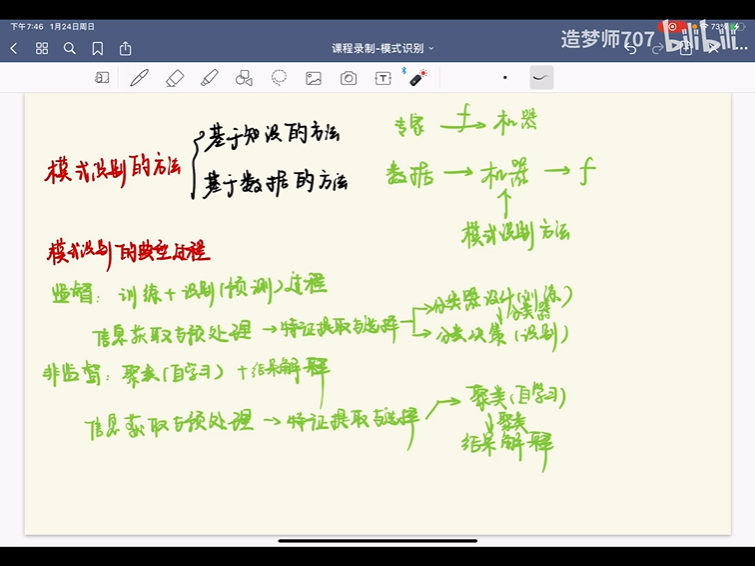 下午7:46 1月24日周日
73%
造梦师707 bilibili
课程录制-模式识别
T
模式识别的方法
基于知识的方法
基于数据的方法
专家 f→ 机器
数据 → 机器 → f
↑
模式识别方法
模式识别的典型过程
监督: 训练+识别(预测)过程
信息获取与预处理 → 特征提取与选择
→ 分类器设计(训练)
↓分类器
→ 分类决策(识别)
非监督: 聚类(自学习)+结果解释
信息获取与预处理 → 特征提取与选择
→ 聚类(自学习)
↓聚类
结果解释